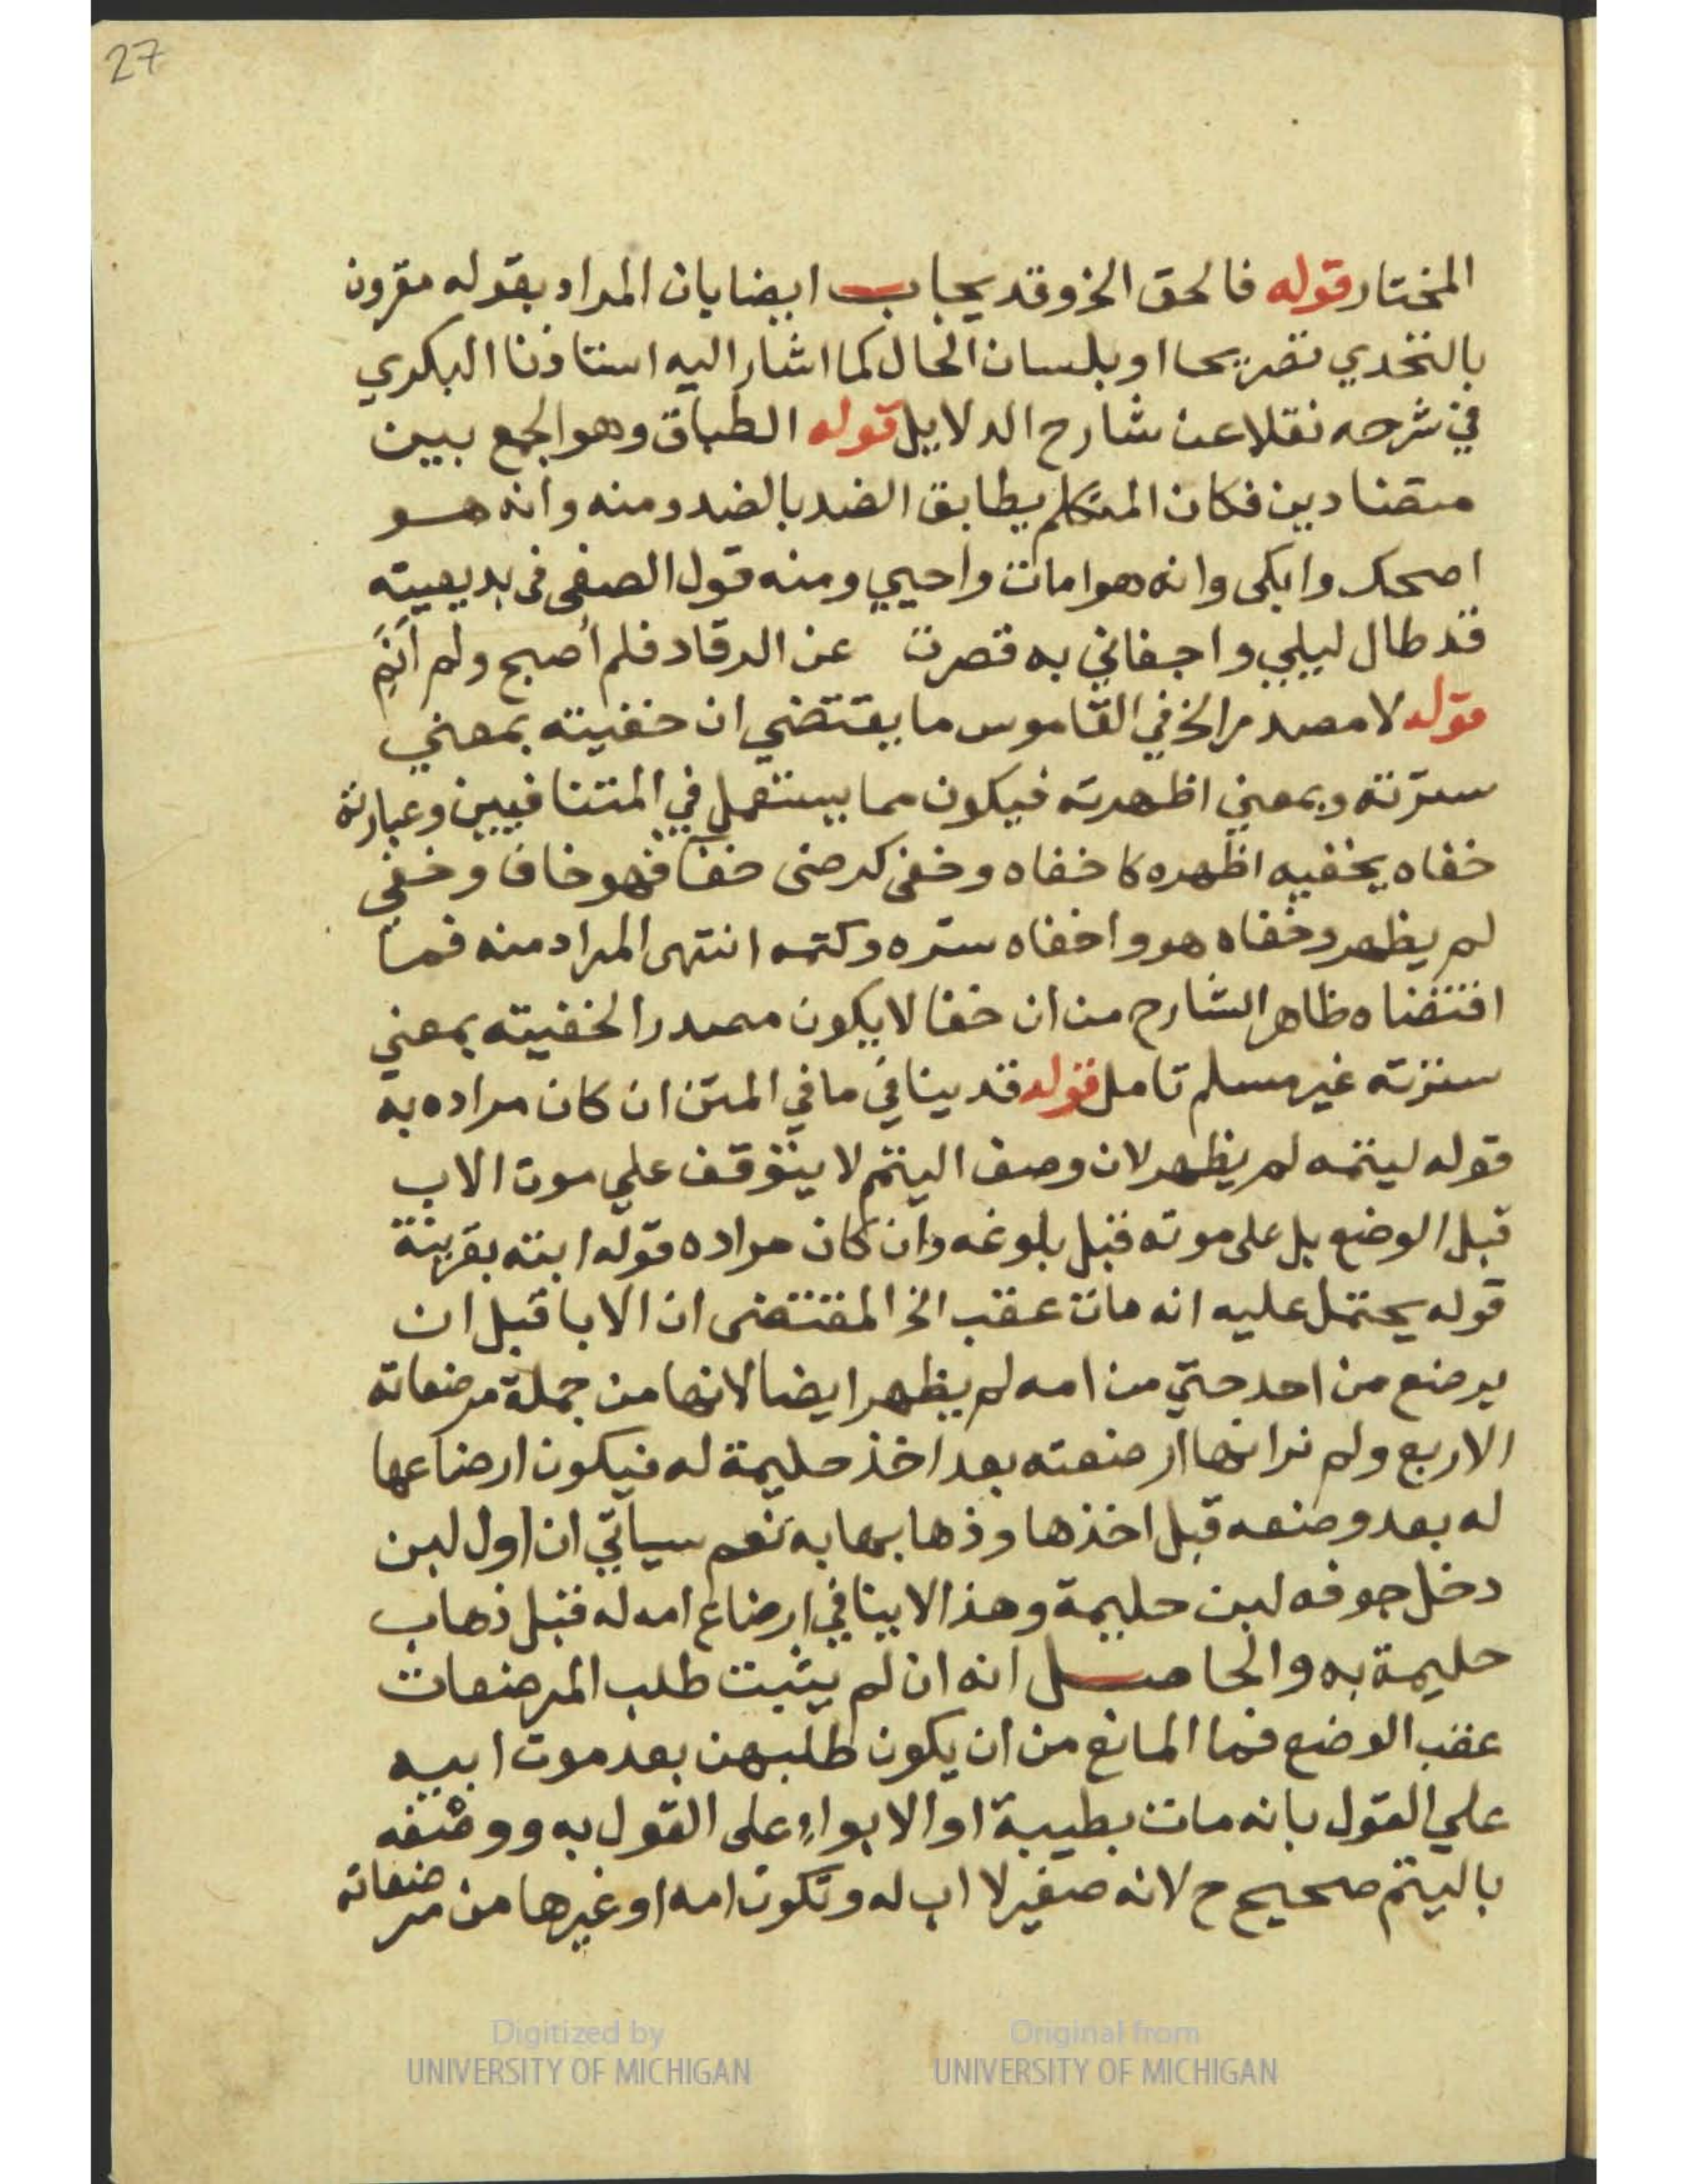 27
المختار قوله فالحق الخ وقد يجاب ايضا بان المراد بقوله مقرون
بالتحدي تصريحا او بلسان الحال كما اشار اليه استاذنا البكري
في شرحه نقلا عن شارح الدلايل قوله الطباق وهو الجمع بين
متضادين فكان المتكلم يطابق الضد بالضد ومنه وانه هو
اضحك وابكى وانه هو امات واحيي ومنه قول الصفي فى بديعيته
قد طال ليلي واجفاني به قصرت عن الرقاد فلم أصبح ولم أنَمِ
قوله لا مصدر الخ في القاموس ما يقتضي ان خفيته بمعني
سترته وبمعني اظهرته فيكون مما يستعمل في المتنافيين وعبارته
خفاه يخفيه اظهره كاخفاه وخفى كرضى خفا فهو خاف وخفي
لم يظهر وخفاه هو واخفاه ستره وكتمه انتهى المراد منه فما
اقتضاه ظاهر الشارح من ان خفا لا يكون مصدرا لخفيته بمعني
سترته غير مسلم تامل قوله قد ينافي ما في المتن ان كان مراده به
قوله ليتمه لم يظهر لان وصف اليتم لا يتوقف علي موت الاب
قبل الوضع بل على موته قبل بلوغه وان كان مراده قوله ابته بقرينة
قوله يحتمل عليه انه مات عقب الخ المقتضى ان الابا قبل ان
يرضع من احد حتي من امه لم يظهر ايضا لانها من جملة مرضعاته
الاربع ولم نر انها ارضعته بعد اخذ حليمة له فيكون ارضاعها
له بعد وضعه قبل اخذها وذهابها به نعم سياتي ان اول لبن
دخل جوفه لبن حليمة وهذا لا ينافي ارضاع امه له قبل ذهاب
حليمة به والحاصل انه ان لم يثبت طلب المرضعات
عقب الوضع فما المانع من ان يكون طلبهن بعد موت ابيه
علي القول بانه مات بطيبة او الابواء على القول به ووصفه
باليتم صحيح ح لانه صغير لا اب له وتكون امه او غيرها من مرضعاته
Digitized by
UNIVERSITY OF MICHIGAN
Original from
UNIVERSITY OF MICHIGAN